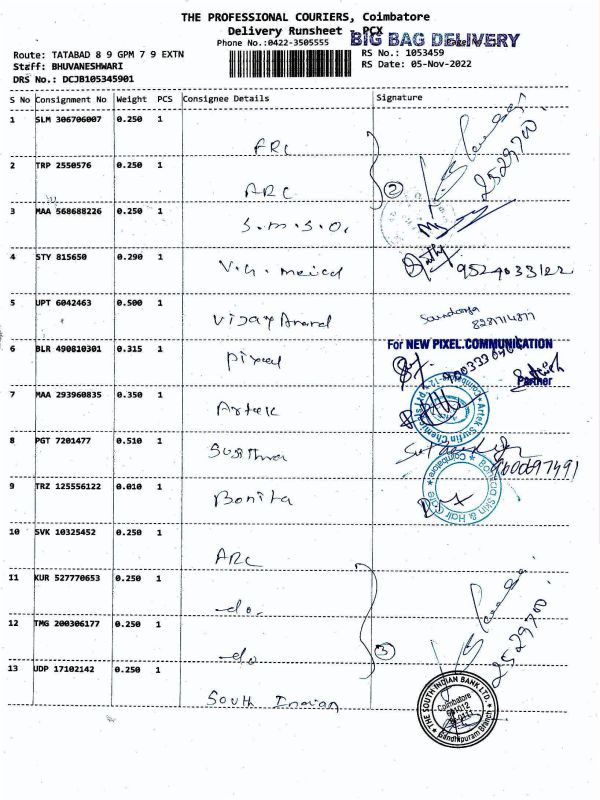 THE PROFESSIONAL COURIERS, Coimbatore
Delivery Runsheet - PCX
BIG BAG DELIVERY
Phone No.:0422-3505555
Route: TATABAD 8 9 GPM 7 9 EXTN
RS No.: 1053459
Staff: BHUVANESHWARI
RS Date: 05-Nov-2022
DRS No.: DCJB105345901
S No Consignment No Weight PCS Consignee Details Signature
1 SLM 306706007 0.250 1
ARC
2 TRP 2550576 0.250 1
ARC
2
2529700
3 MAA 568688226 0.250 1
S.M.S.O.
4 STY 815650 0.290 1
V.G.
5 UPT 6042463 0.500 1
Vijay Anand
For NEW PIXEL COMMUNICATION
6 BLR 490810301 0.315 1
Pixel
Partner
7 MAA 293960835 0.350 1
Artek
Artek Surfin Chemic
Coimbatore-12
8 PGT 7201477 0.510 1
9600697491
9 TRZ 125556122 0.010 1
Bonita
Skin & Hair
Coimbatore
10 SVK 10325452 0.250 1
ARC
11 KUR 527770653 0.250 1
-do.
12 TMG 200306177 0.250 1
-do
3
2529700
13 UDP 17102142 0.250 1
South Indian
THE SOUTH INDIAN BANK LTD.
Coimbatore
Gandhipuram Branch